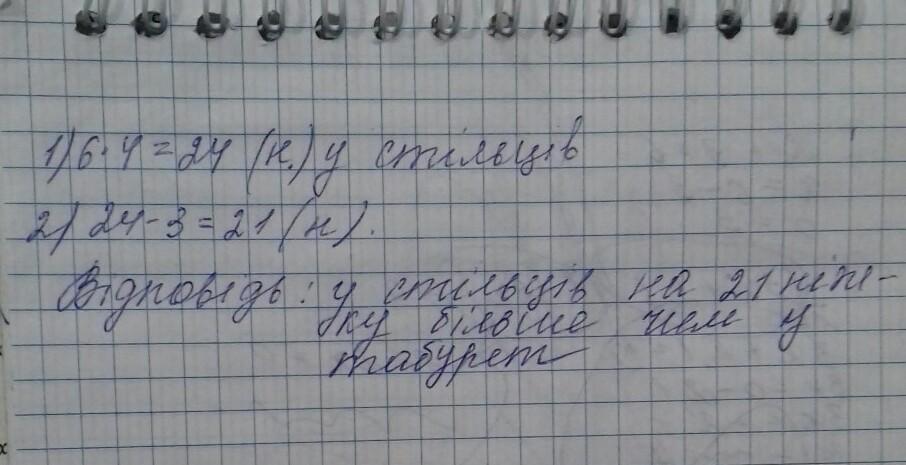 1) 6·4=24 (н.) у стільців
2) 24-3=21 (н).
Відповідь: у стільців на 21 ніж-
ку більше чем у
табурет